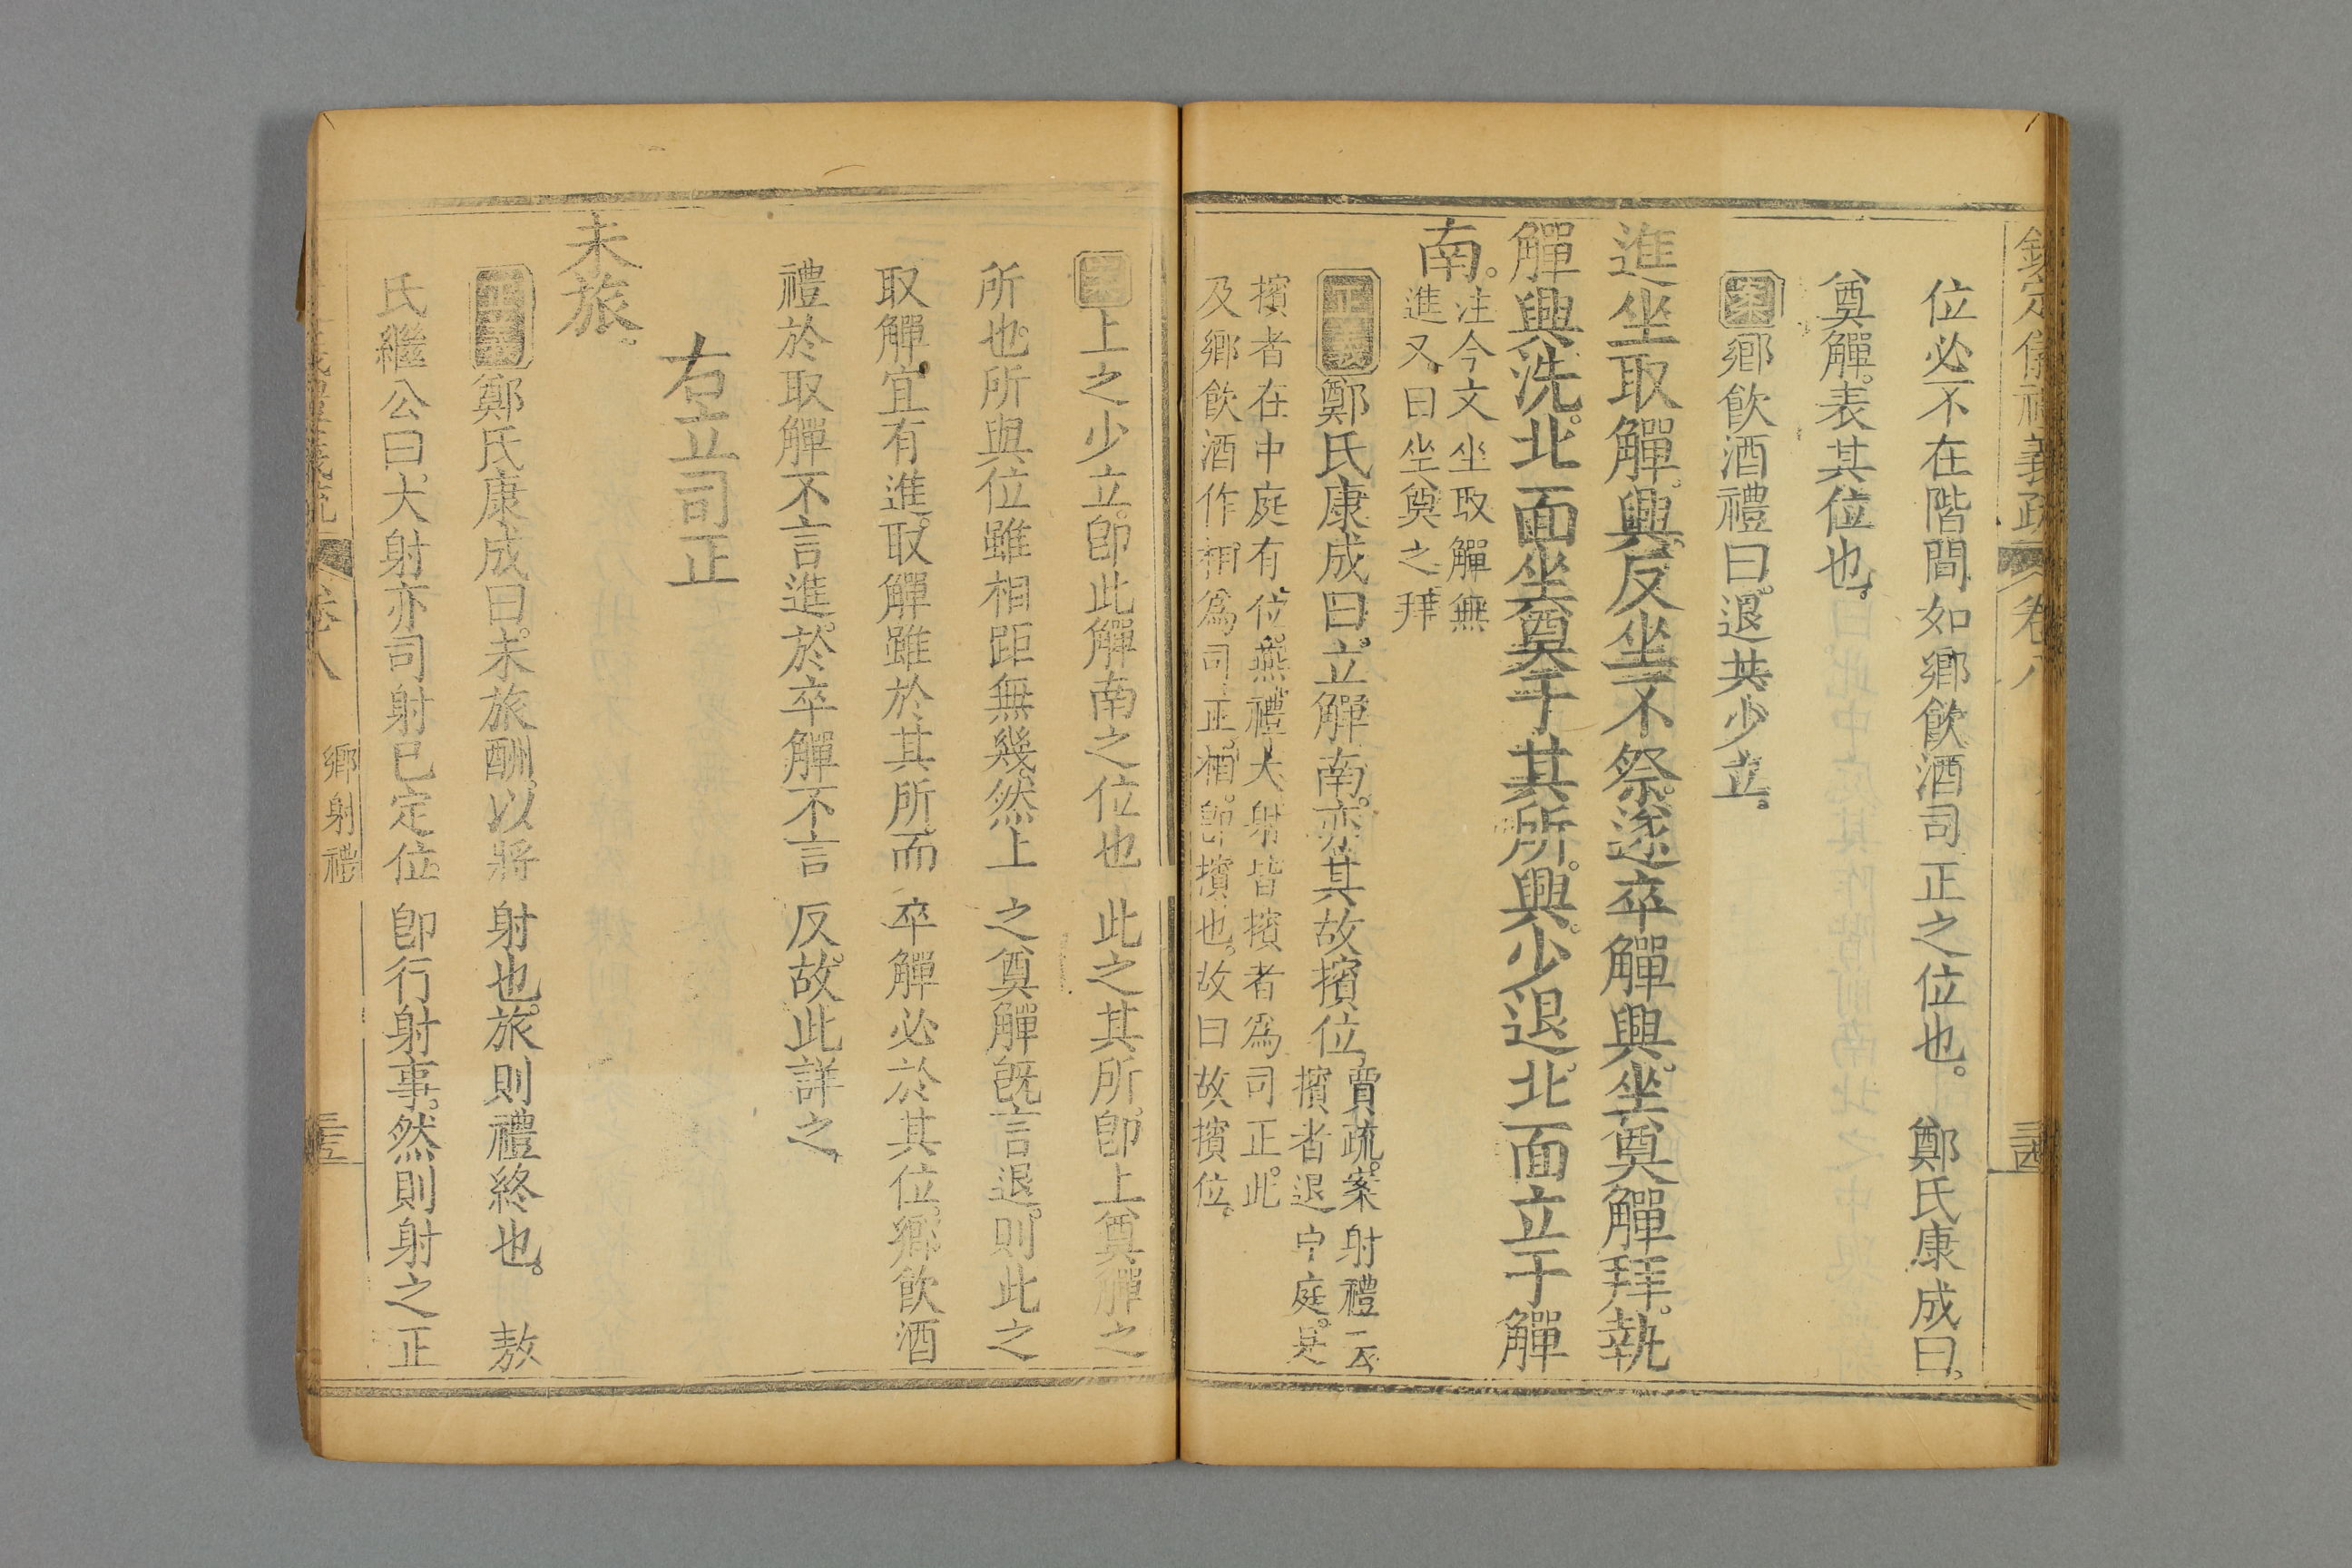 欽定儀禮義疏 卷八 三四
位必不在階間如鄉飲酒司正之位也。 鄭氏康成曰。
奠觶。表其位也。
案鄉飲酒禮曰。退共少立。
進坐取觶。興。反坐。不祭。遂卒觶。興。坐奠觶。拜。執
觶興。洗。北面坐奠于其所。興。少退。北面立于觶
南。
注今文坐取觶無
進又曰坐奠之拜
正義鄭氏康成曰。立觶南。亦其故擯位
賈疏。案射禮云
擯者退中庭。是
擯者在中庭有位。燕禮大射皆擯者為司正。此
及鄉飲酒作相為司正。相。即擯也。故曰故擯位。
案上之少立。即此觶南之位也 此之其所。即上奠觶之
所也。所與位雖相距無幾。然上 之奠觶既言退。則此之
取觶。宜有進。取觶雖於其所。而 卒觶必於其位。鄉飲酒
禮於取觶不言進。於卒觶不言 反。故此詳之
右立司正
未旅。
正義鄭氏康成曰。未旅酬。以將 射也。旅則禮終也。 敖
氏繼公曰。大射亦司射已定位。 即行射事。然則射之正
卷八 鄉射禮 三五